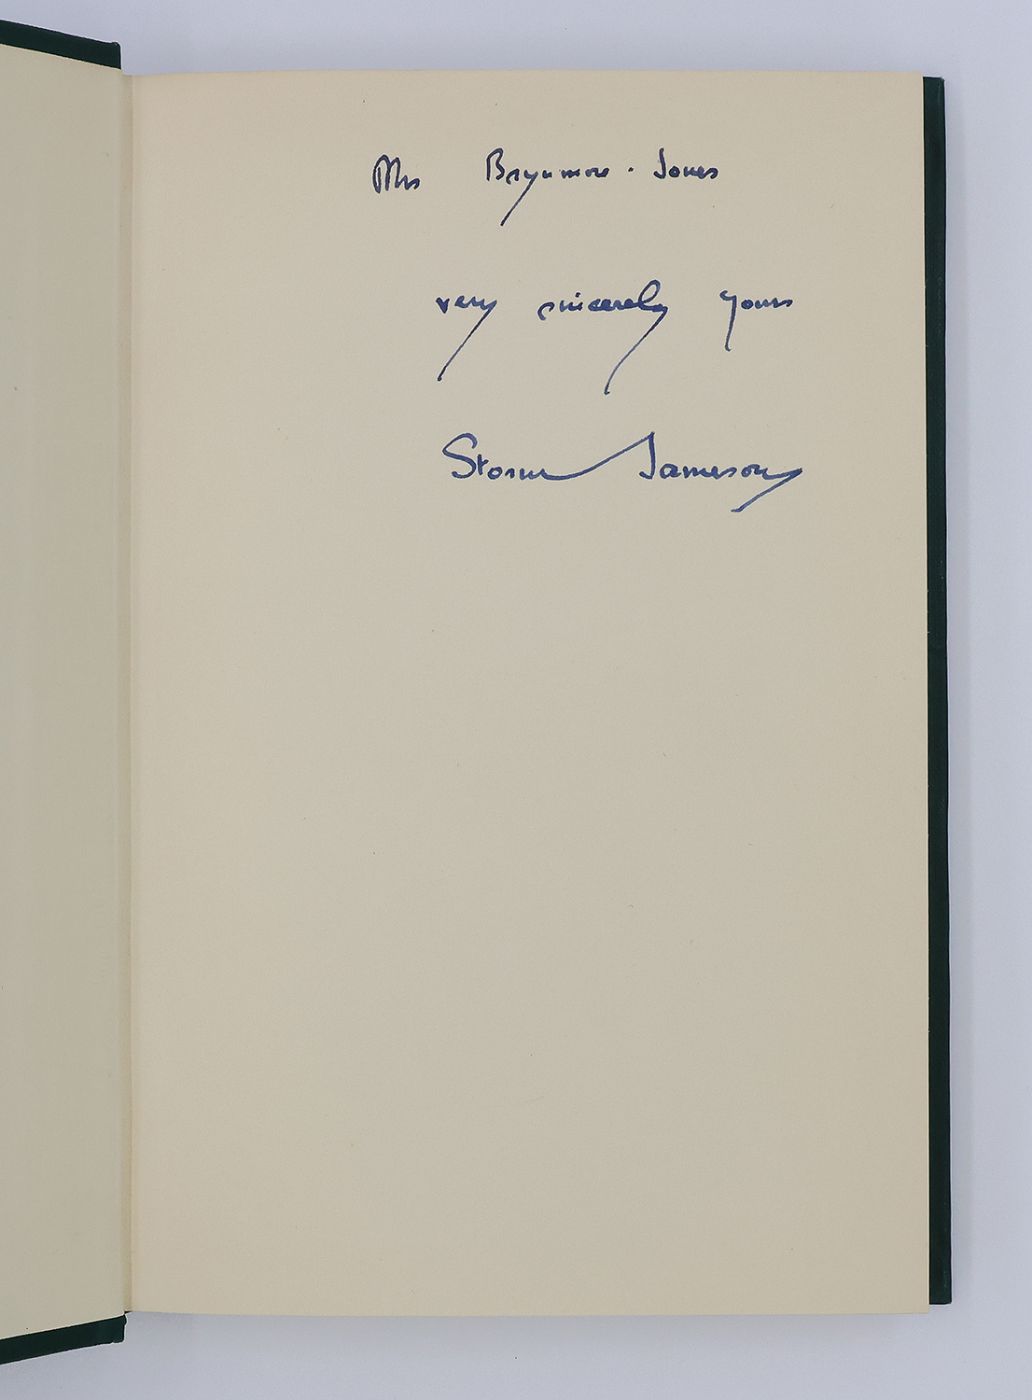 Mrs Brynmor-Jones
very sincerely yours
Storm Jameson